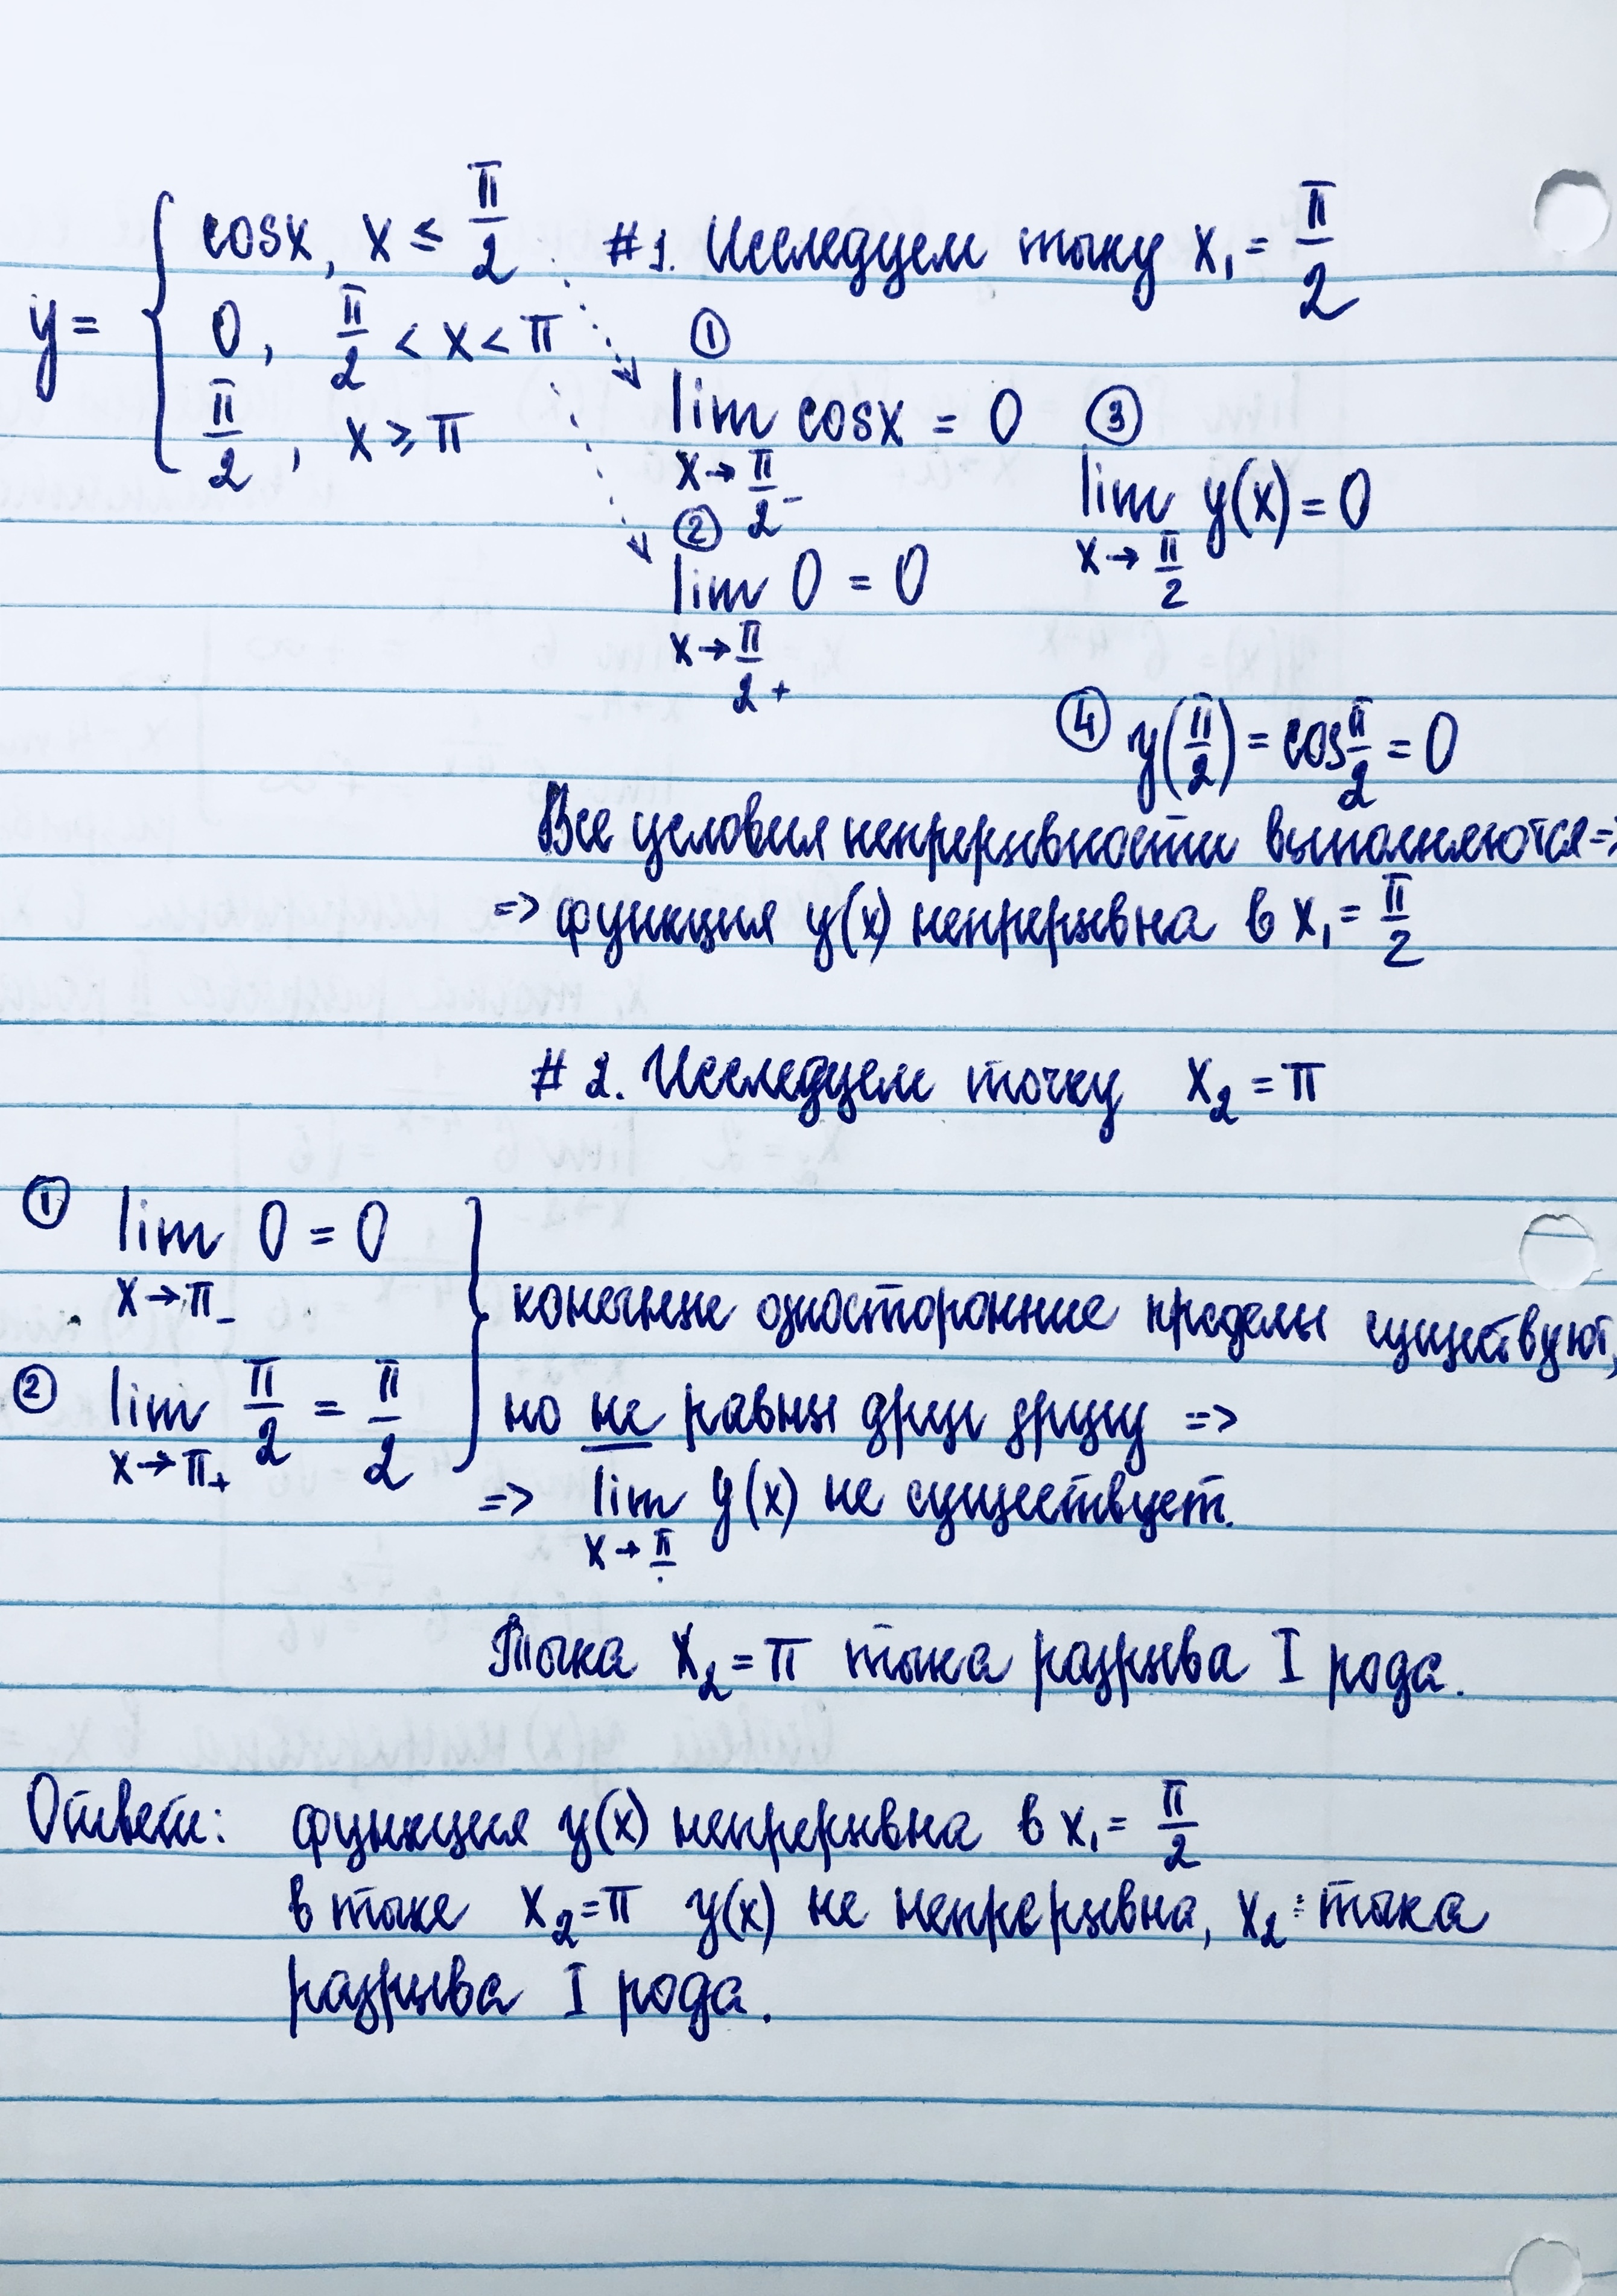 y = { cosx, x ≤ π/2
0, π/2 < x < π
π/2, x ≥ π
#1. Исследуем точку x₁ = π/2
① lim cosx = 0
x→π/2-
② lim 0 = 0
x→π/2+
③ lim y(x) = 0
x→π/2
④ y(π/2) = cos π/2 = 0
Все условия непрерывности выполняются =>
=> функция y(x) непрерывна в x₁ = π/2
#2. Исследуем точку x₂ = π
① lim 0 = 0
x→π-
② lim π/2 = π/2
x→π+
} конечные односторонние пределы существуют,
но не равны друг другу =>
=> lim y(x) не существует.
x→π
Точка x₂ = π точка разрыва I рода.
Ответ: функция y(x) непрерывна в x₁ = π/2
в точке x₂ = π y(x) не непрерывна, x₂ - точка
разрыва I рода.